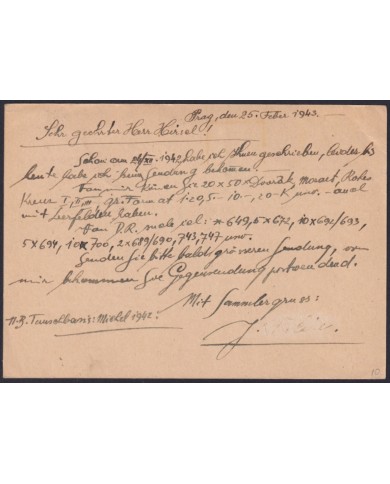 Prag, den 25. Feber 1943.
Sehr geehrter Herr Hirsel!
Schon am 26/XII. 1942 habe ich Ihnen geschrieben, leider bis
heute habe ich keine Sendung bekommen.
Von mir können Sie 20 x 50 K Dvořák, Mozart, Rotes
Kreuz I, II, III, Gr. Format 1.20,5- 10-, 20-K usw. - auch
mit Leerfeldern haben.
Von D.R. viele 649, 5 x 672, 10 x 692/693,
5 x 694, 10 x 700, 2 x 689/690, 743, 747 usw.
Senden Sie bitte bald grössere Sendung, von
mir bekommen Sie Gegensendung postwendend.
Mit Sammlergruss:
N.B. Tauschbasis: Michel 1942.
J.
10